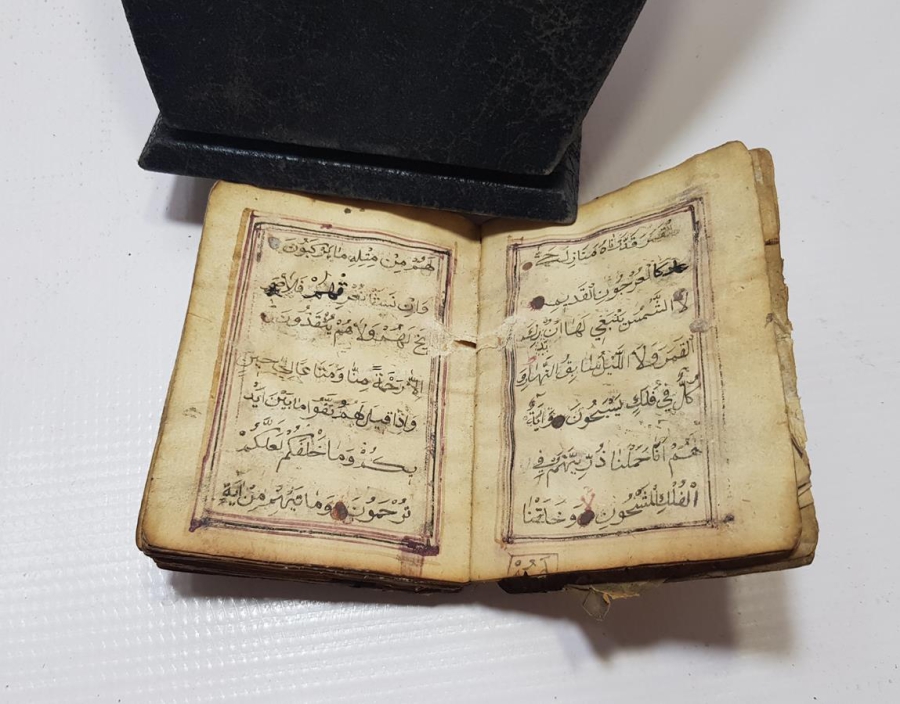 القَمَرَ قَدَّرْنَاهُ مَنَازِلَ حَتَّى
عَادَ كَالْعُرْجُونِ الْقَدِيمِ
لَا الشَّمْسُ يَنْبَغِي لَهَا أَنْ تُدْرِكَ
القَمَرَ وَلَا اللَّيْلُ سَابِقُ النَّهَارِ وَ
كُلٌّ فِي فَلَكٍ يَسْبَحُونَ وَاٰيَةٌ
لَهُمْ أَنَّا حَمَلْنَا ذُرِّيَّتَهُمْ فِي
الْفُلْكِ الْمَشْحُونِ وَخَلَقْنَا
لَهُمْ
لَهُمْ مِنْ مِثْلِهِ مَا يَرْكَبُونَ
وَإِنْ نَشَأْ نُغْرِقْهُمْ فَلَا صَرِ
يخَ لَهُمْ وَلَا هُمْ يُنْقَذُونَ
إِلَّا رَحْمَةً مِنَّا وَمَتَاعًا إِلَى حِينٍ
وَإِذَا قِيلَ لَهُمُ تَّقُوا مَا بَيْنَ أَيْدِ
يكُمْ وَمَا خَلْفَكُمْ لَعَلَّكُمْ
تُرْحَمُونَ وَمَا تَأْتِيهِمْ مِنْ اٰيَةٍ